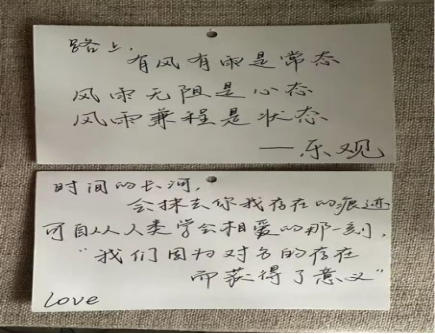 路上,
有风有雨是常态
风雨无阻是心态
风雨兼程是状态
——乐观
时间的长河,
会抹去你我存在的痕迹
可自从人类学会相爱的那一刻,
“我们因为对方的存在
而获得了意义”
Love